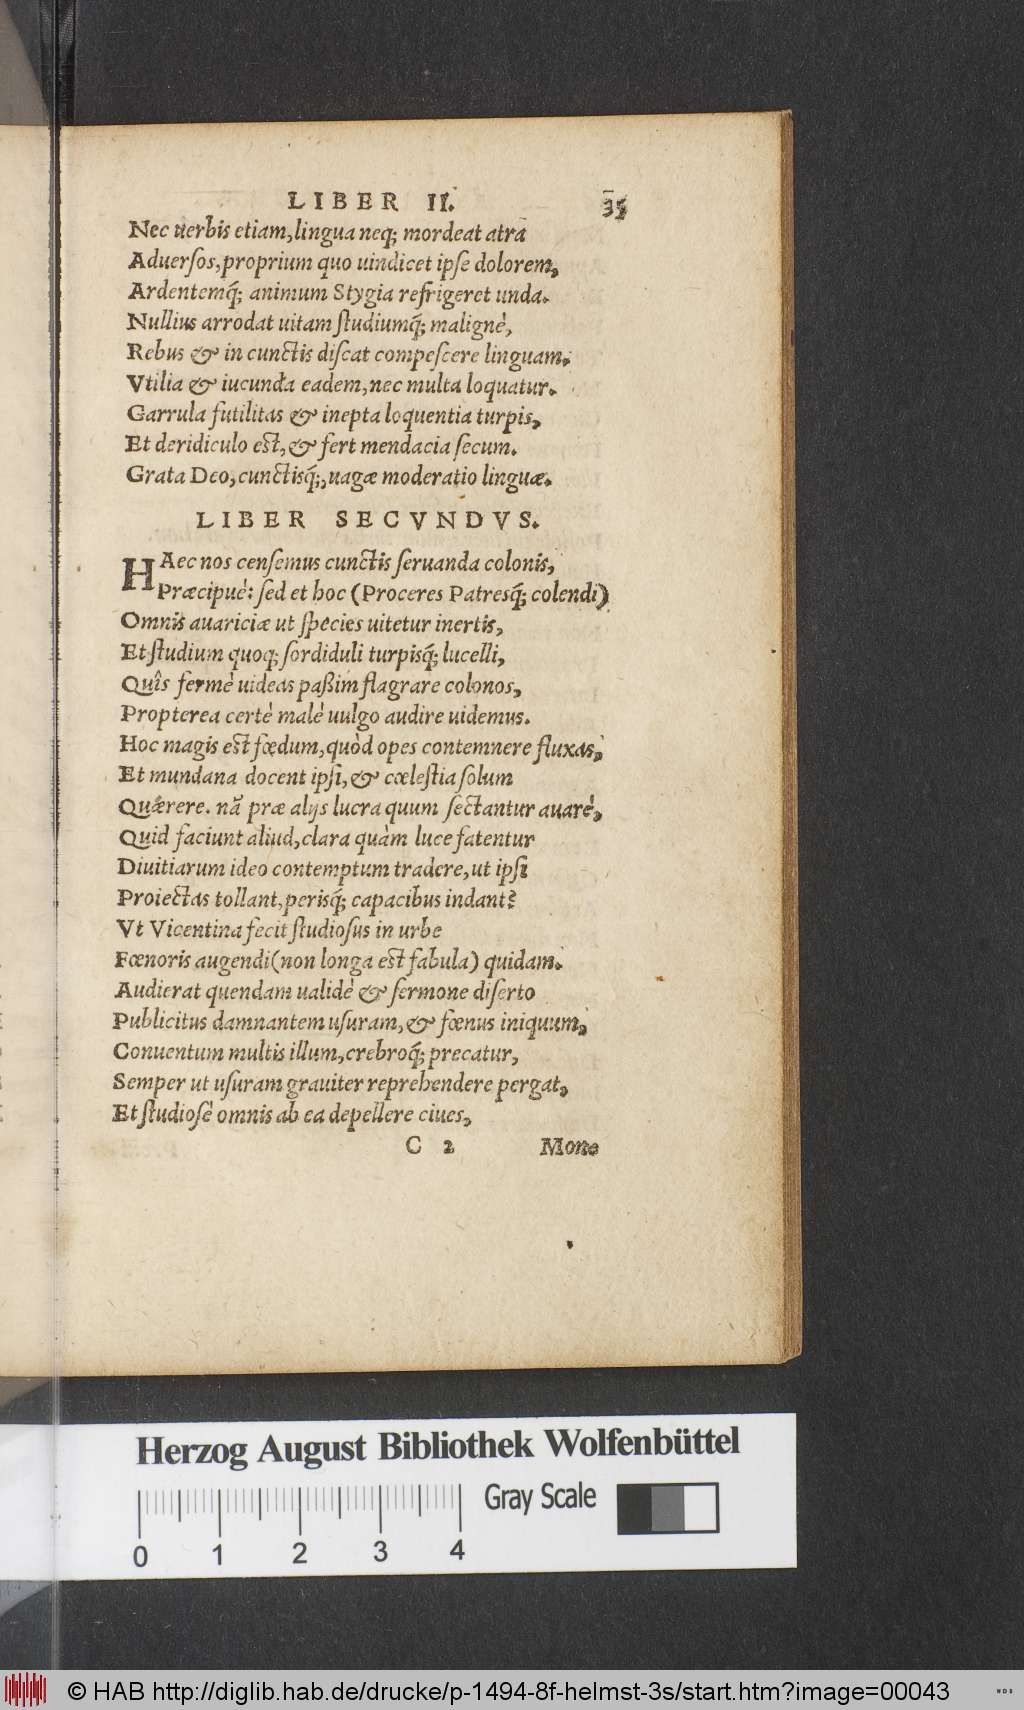 LIBER II. 35
Nec uerbis etiam, lingua neq; mordeat atra
Aduerſos, proprium quo uindicet ipſe dolorem,
Ardentemq́; animum Stygia refrigeret unda.
Nullius arrodat uitam ſtudiumq́; malignè,
Rebus & in cunctis diſcat compeſcere linguam.
Vtilia & iucunda eadem, nec multa loquatur.
Garrula futilitas & inepta loquentia turpis,
Et deridiculo eſt, & fert mendacia ſecum.
Grata Deo, cunctisq́;, uagæ moderatio linguæ.
LIBER SECVNDVS.
HAec nos cenſemus cunctis ſeruanda colonis,
Præcipuè: ſed et hoc (Proceres Patresq́; colendi)
Omnis auariciæ ut ſpecies uitetur inertis,
Et ſtudium quoq; ſordiduli turpisq́; lucelli,
Quîs fermè uideas paßim flagrare colonos,
Propterea certè malè uulgo audire uidemus.
Hoc magis eſt fœdum, quòd opes contemnere fluxas,
Et mundana docent ipſi, & cœleſtia ſolum
Quærere. nã præ alijs lucra quum ſectantur auarè,
Quid faciunt aliud, clara quàm luce fatentur
Diuitiarum ideo contemptum tradere, ut ipſi
Proiectas tollant, perisq́; capacibus indant?
Vt Vicentina fecit ſtudioſus in urbe
Fœnoris augendi (non longa eſt fabula) quidam.
Audierat quendam ualidè & ſermone diſerto
Publicitus damnantem uſuram, & fœnus iniquum,
Conuentum multis illum, crebroq́; precatur,
Semper ut uſuram grauiter reprehendere pergat,
Et ſtudioſè omnis ab ea depellere ciues,
C 2 Mone
Herzog August Bibliothek Wolfenbüttel
Gray Scale
0 1 2 3 4
© HAB http://diglib.hab.de/drucke/p-1494-8f-helmst-3s/start.htm?image=00043